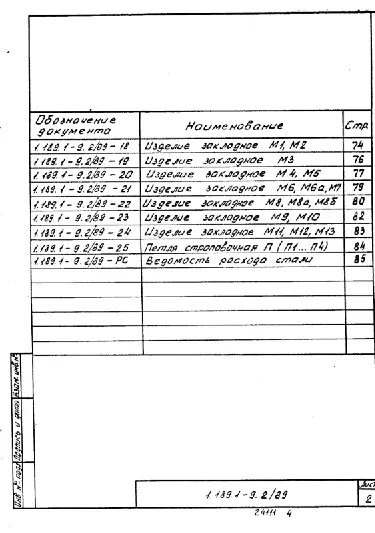 Обозначение документа Наименование Стр.
1.189.1-9.2/89-18 Изделие закладное М1, М2 74
1.189.1-9.2/89-19 Изделие закладное М3 76
1.189.1-9.2/89-20 Изделие закладное М4, М5 77
1.189.1-9.2/89-21 Изделие закладное М6, М6а, М7 79
1.189.1-9.2/89-22 Изделие закладное М8, М8а, М8б 80
1.189.1-9.2/89-23 Изделие закладное М9, М10 82
1.189.1-9.2/89-24 Изделие закладное М11, М12, М13 83
1.189.1-9.2/89-25 Петля строповочная П (П1...П4) 84
1.189.1-9.2/89-РС Ведомость расхода стали 85
Взам. инв. №
Подпись и дата
Инв. № подл.
1.189.1-9.2/89
Лист
2
24111 4